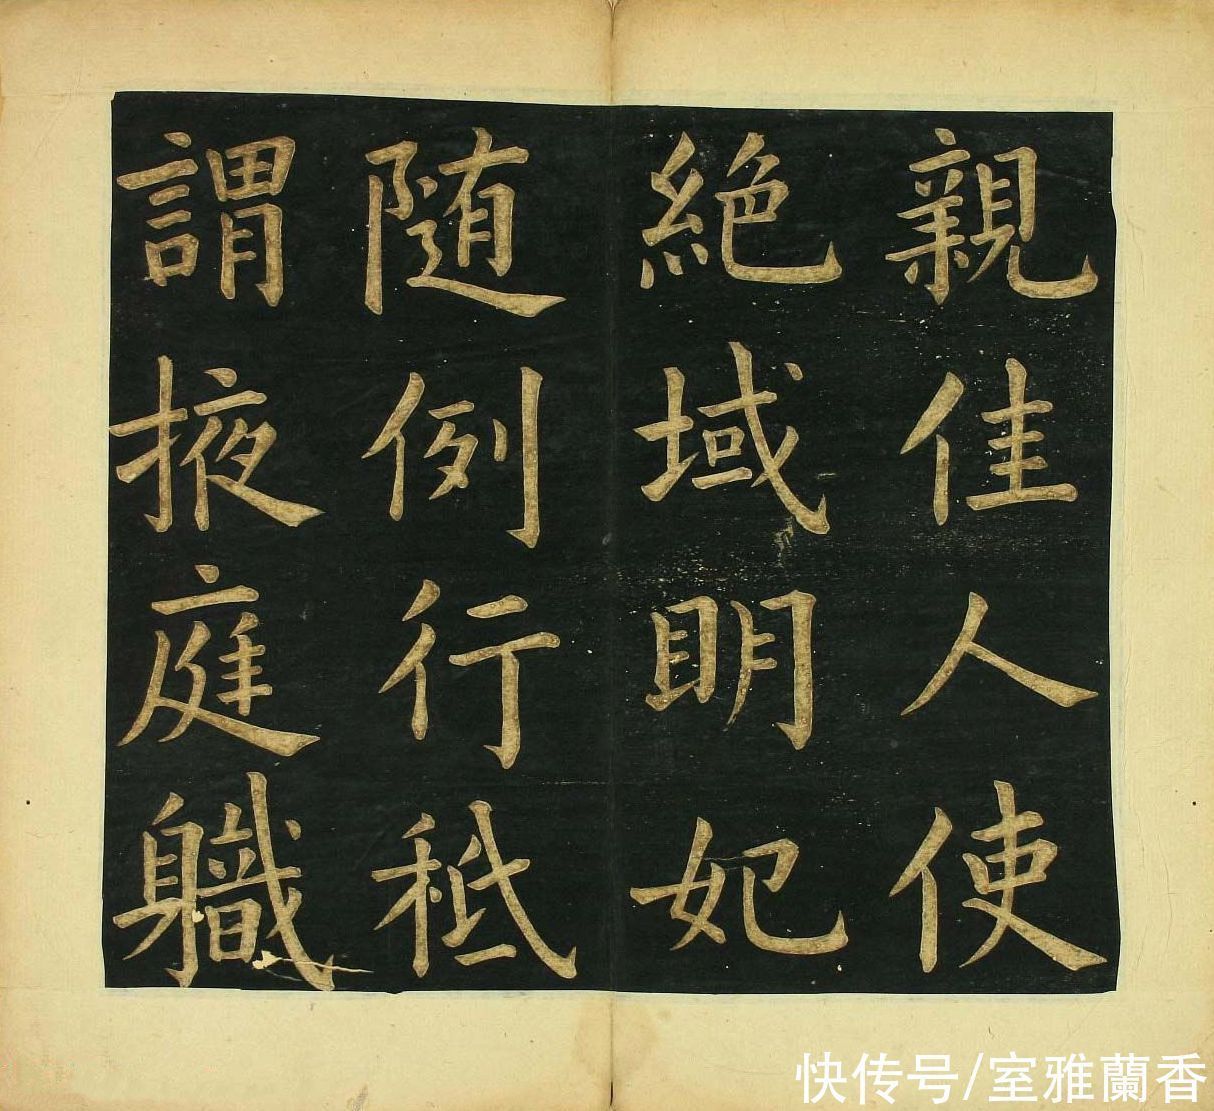 親佳人使
絶域明妃
随例行秪
謂掖庭軄
快传号/室雅蘭香